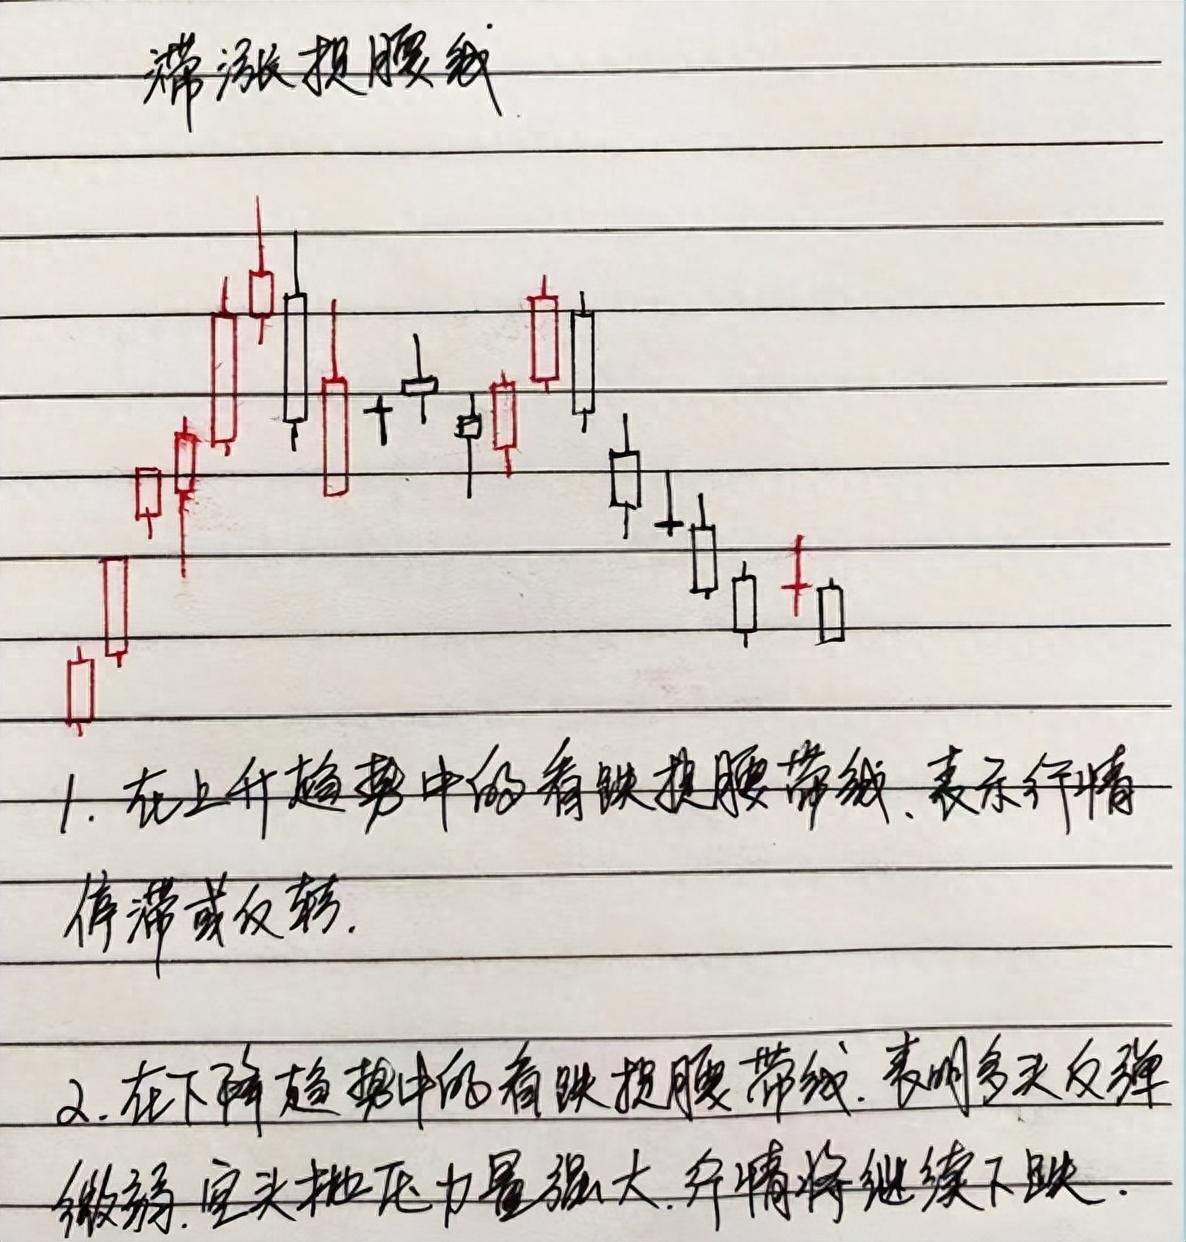 滞涨捉腰线
1. 在上升趋势中的看跌捉腰带线、表示行情
停滞或反转.
2. 在下降趋势中的看跌捉腰带线. 表明多头反弹
微弱. 空头抛压力量强大. 行情将继续下跌.